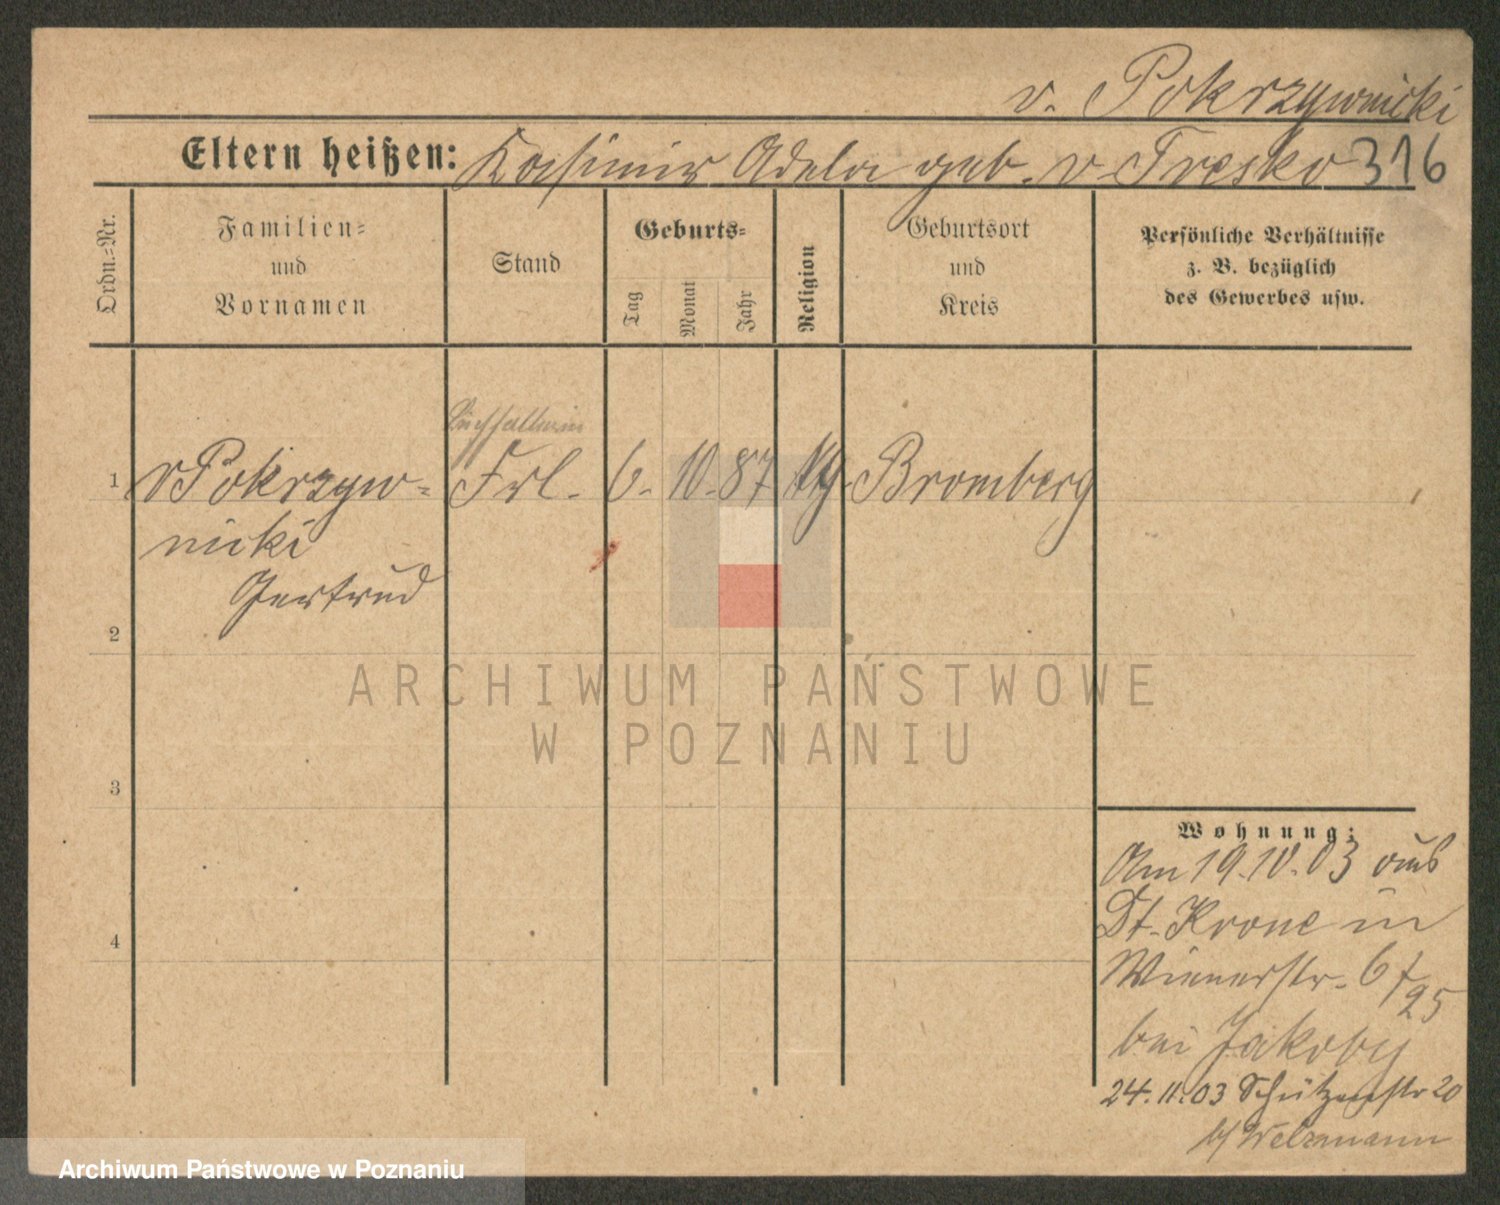 v. Pokrzywnicki
Eltern heißen: Kasimir Adela geb. v. Tresko 316
Ordn.-Nr.
Familien-
und
Vornamen
Stand
Geburts-
Tag
Monat
Jahr
Religion
Geburtsort
und
Kreis
Persönliche Verhältnisse
z. B. bezüglich
des Gewerbes usw.
Buchhalterin
1 v Pokrzyw- Frl. 6. 10. 87 Bromberg
nicki
Gertrud
2
3
4
Wohnung:
Am 19.10.03 aus
Dt. Krone in
Wienerstr. 6
bei Jakoby
24.11.03 Schützenstr 20
b/ Welzmann
ARCHIWUM PAŃSTWOWE
W POZNANIU
Archiwum Państwowe w Poznaniu